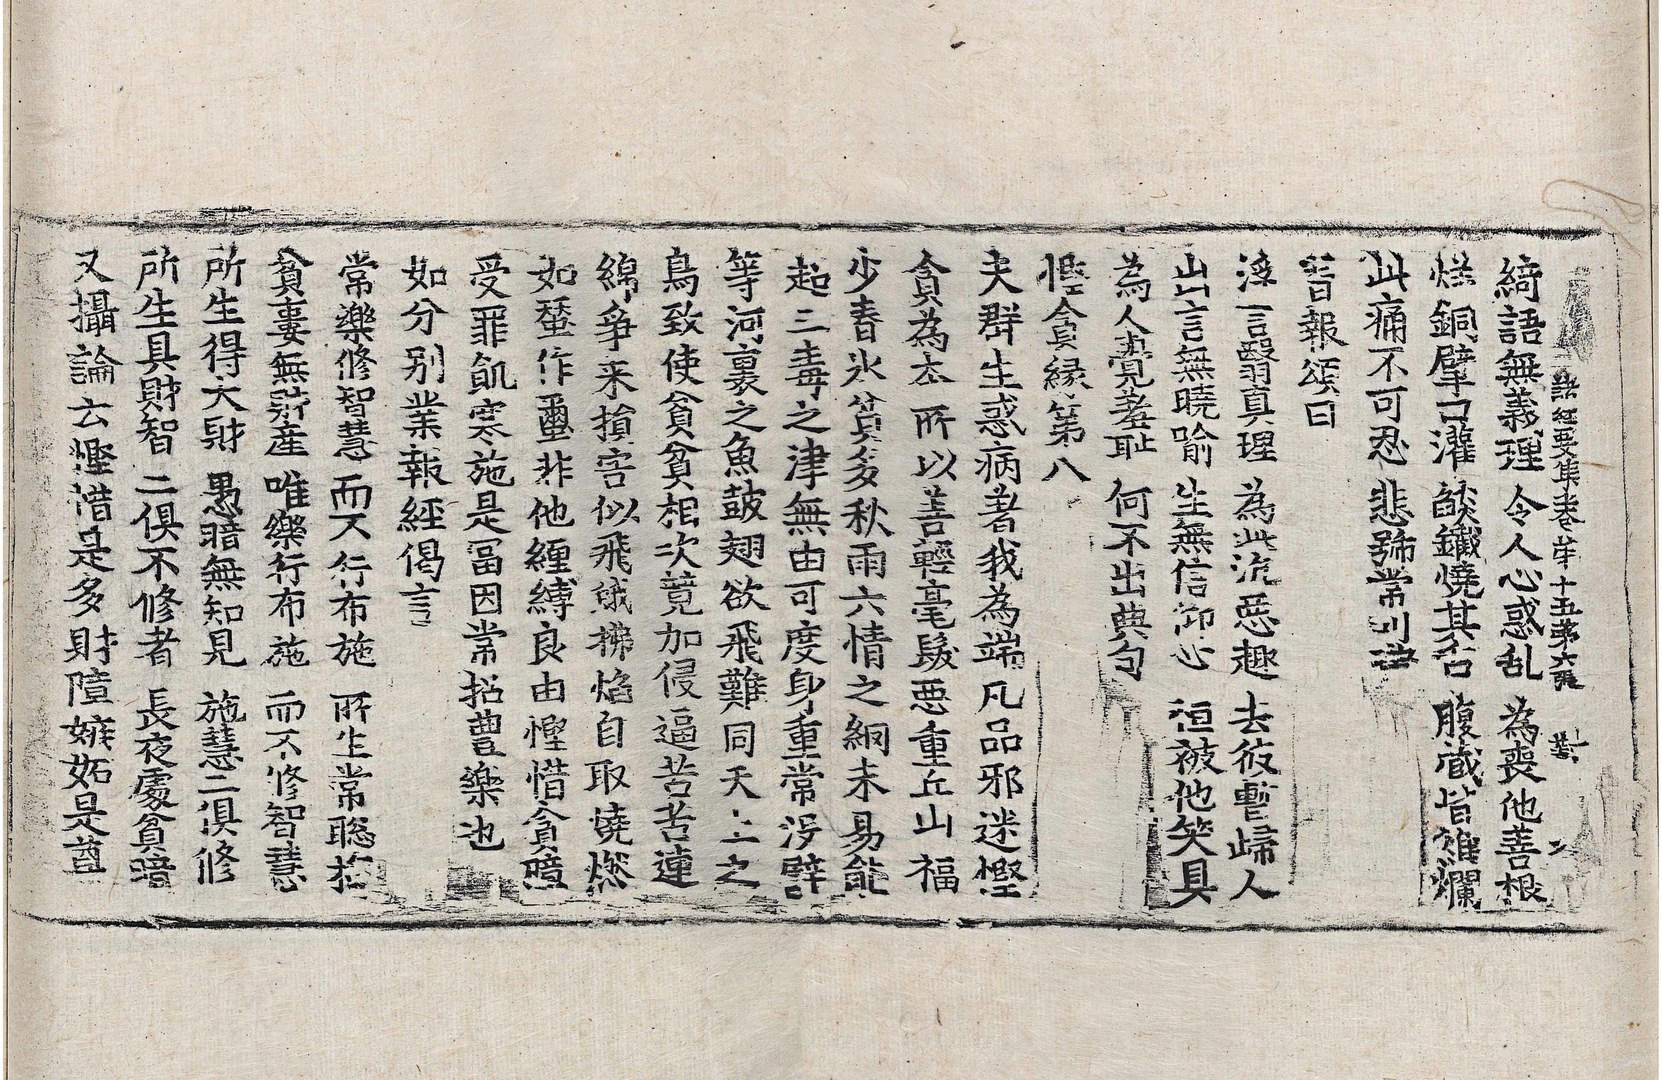 諸経要集卷苐十五苐六張 對
綺語無義理 令人心惑乱 為喪他善根
烊銅擘口灌 䤵鐵燒其舌 腹蔵皆燋爛
此痛不可忍 悲號常叫喚
習報頌曰
浮言翳真理 為此沉惡趣 去彼暫歸人
出言無曉喻 生無信仰心 恒被他笑具
為人覺羞恥 何不出典句
慳貪縁第八
夫群生惑病著我為端凡品邪迷慳
貪為夲所以善輕毫髮惡重丘山福
少春氷貧多秋雨六情之網未易能
起三毒之津無由可度身重常没譬
等河裏之魚鼓翅欲飛難同天上之
鳥致使貧貧相次競加侵逼苦苦連
綿爭来損害似飛蛾拂焰自取燒燃
如蝅作璽非他纏縛良由慳惜貪障
受罪飢寒施是冨因常招豊樂也
如分别業報經偈言
常樂修智慧 而不行布施 所生常聡抬
貧婁無財産 唯樂行布施 而不修智慧
所生得大財 愚暗無知見 施慧二俱修
所生具財智 二俱不修者 長夜處貧暗
又攝論云慳惜是多財障嫉妬是尊